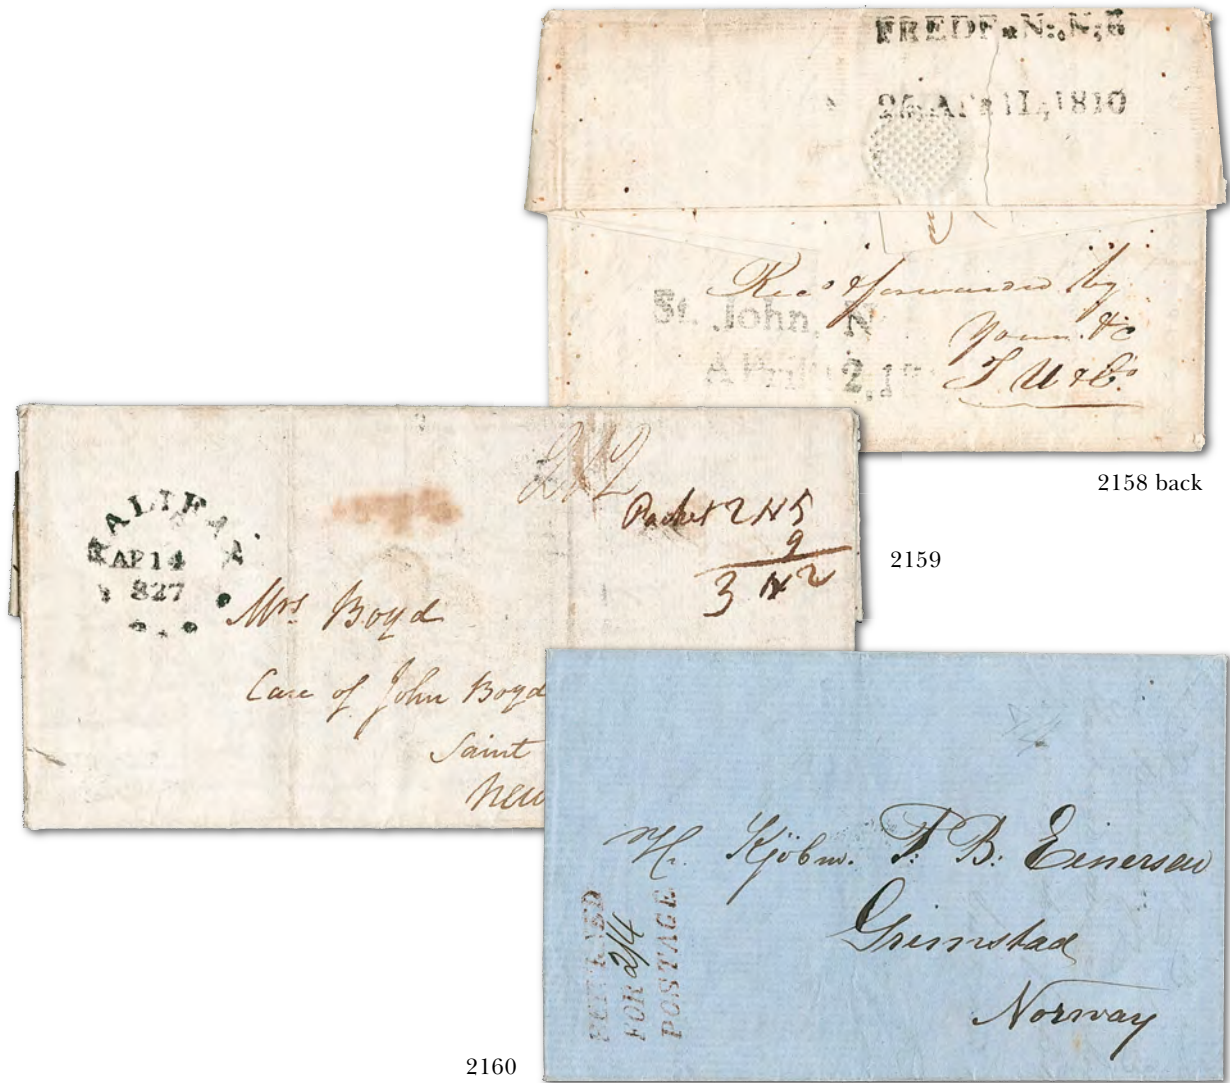 FREDF.
26, APRIL, 1810
Rec'd & forwarded by
St. John, N
Yours &c
April 2, 18
2158 back
HALIFAX
AP 14
1827
Packet 2 N 5
9
3 N 2
2159
Mrs. Boyd
Care of John Boyd
Saint
New
RETURNED
FOR 2/4
POSTAGE
Kjöbm. P. B. Einersen
Grimstad
Norway
2160